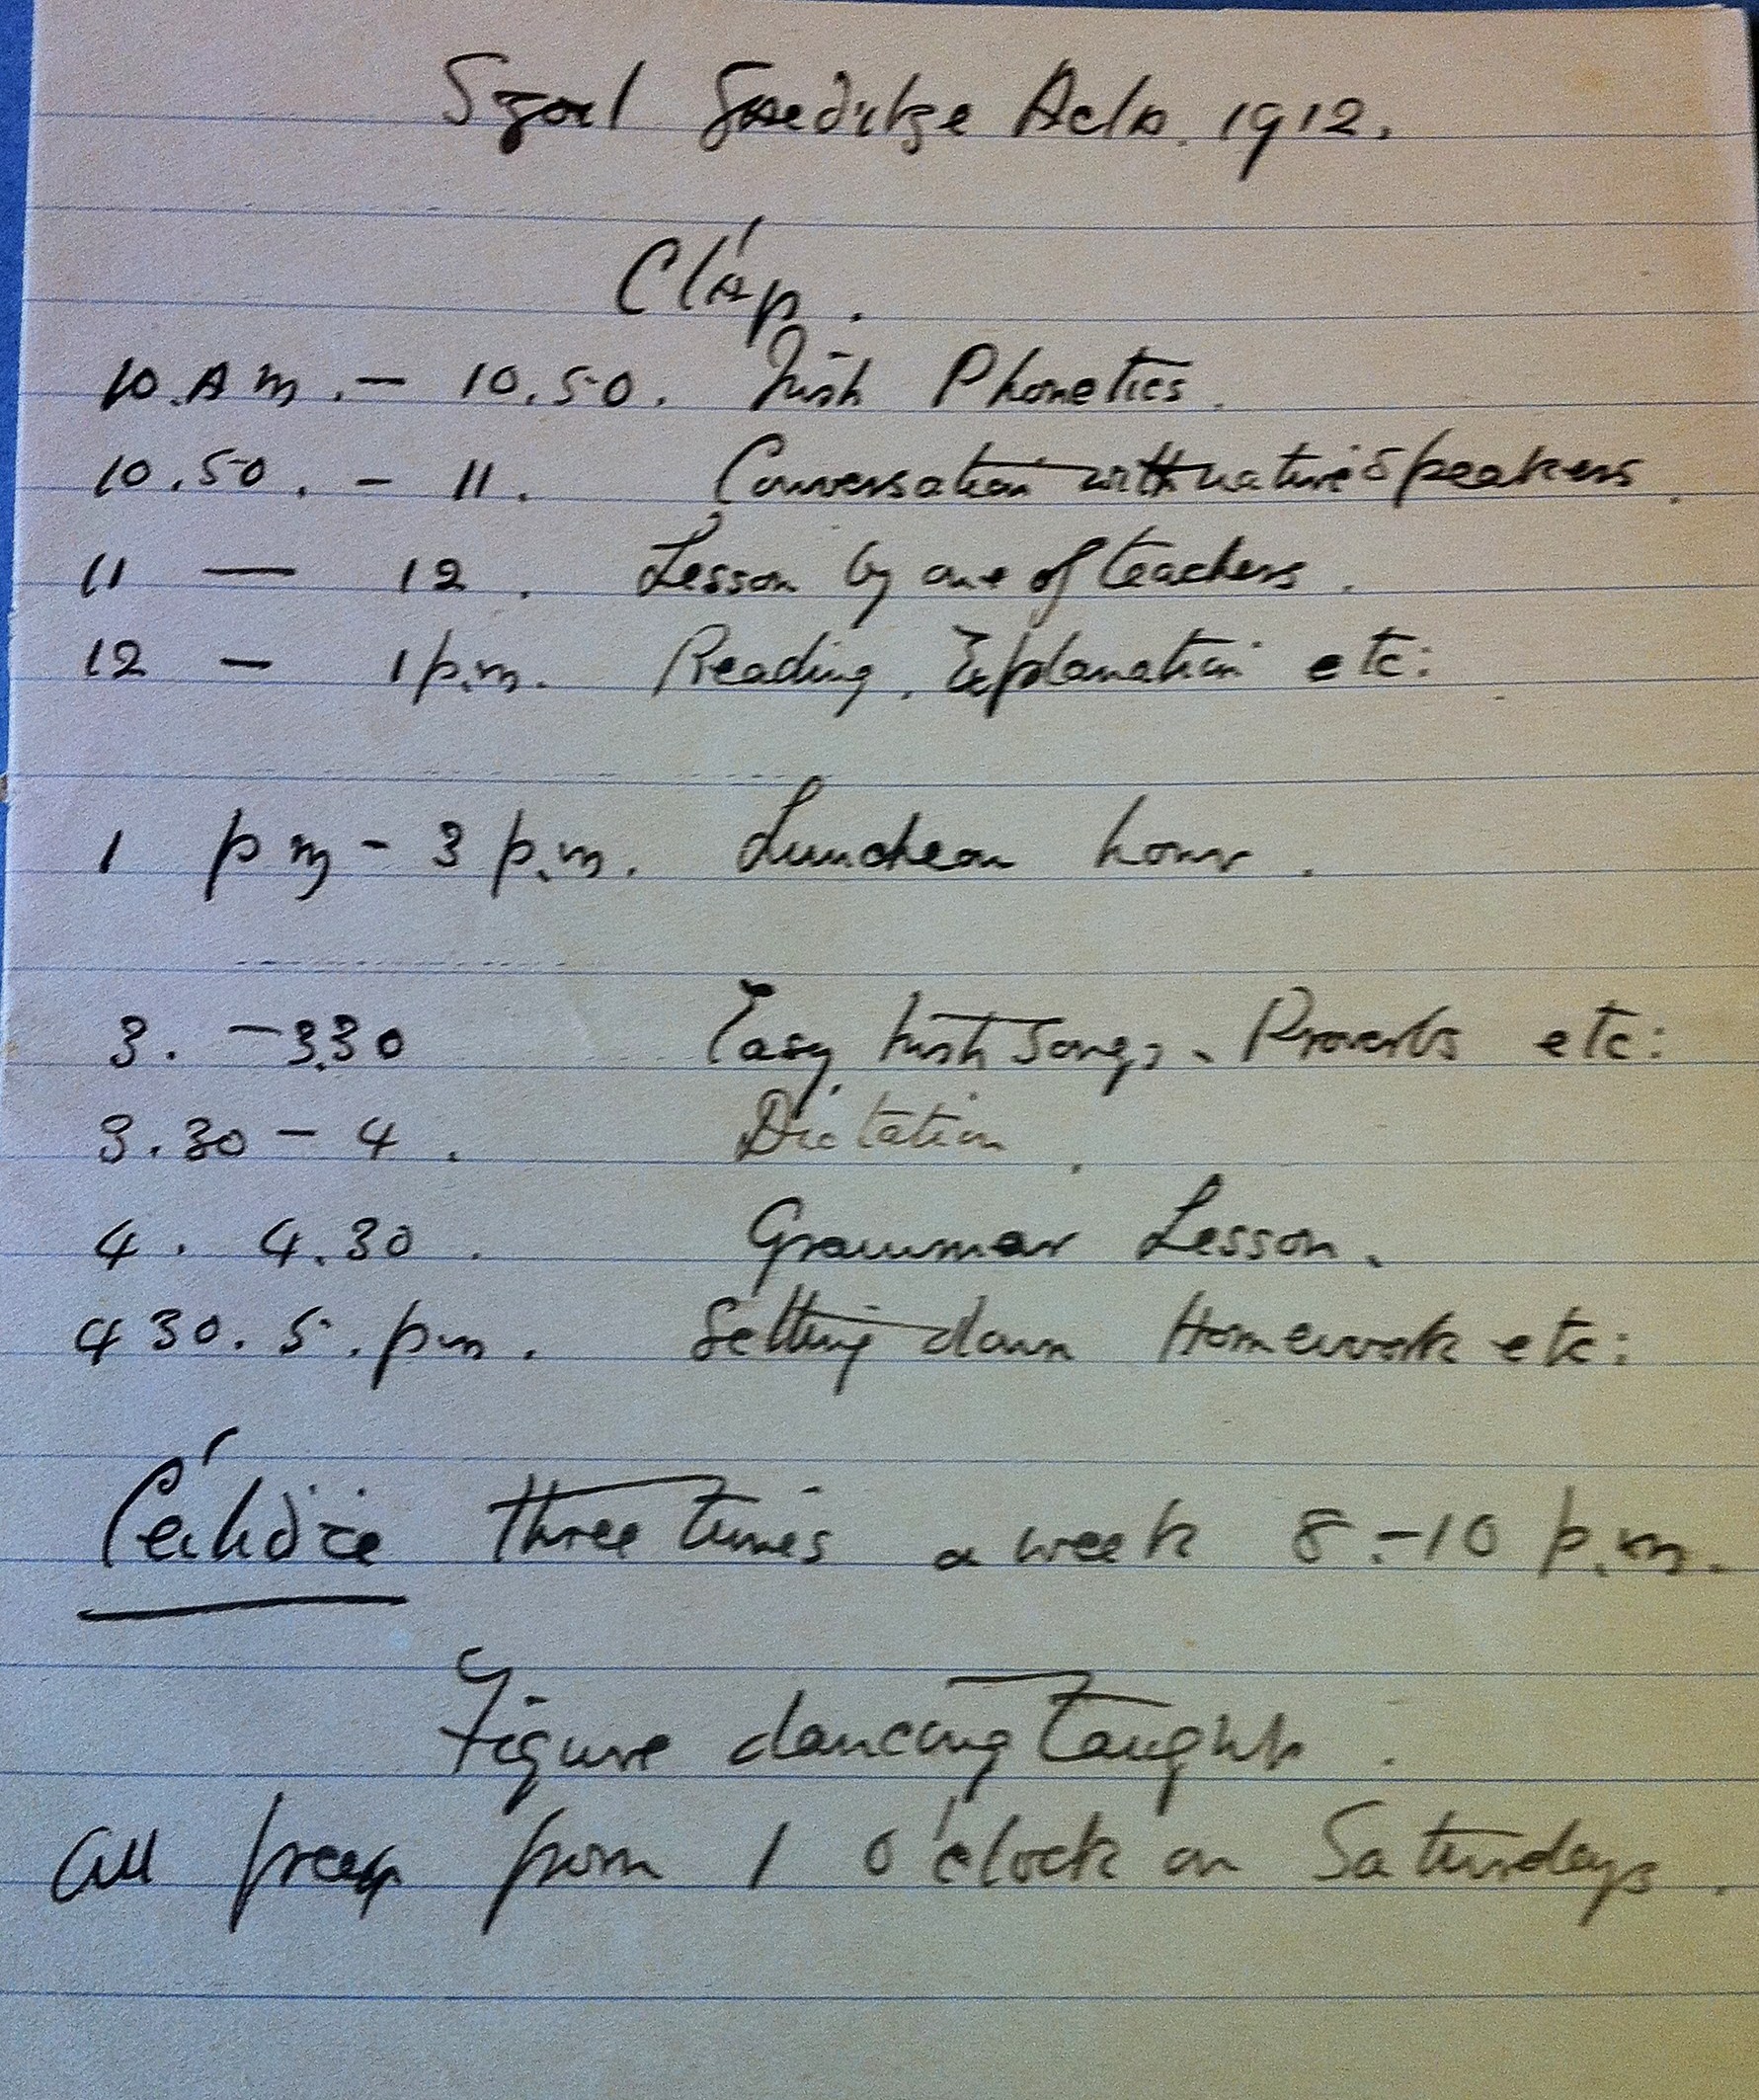 Sgoil Gaedilge Acla. 1912.
Clár.
10. A m. – 10.50. Irish Phonetics.
10.50. – 11. Conversation with native Speakers.
11 — 12. Lesson by one of teachers.
12 – 1 p.m. Reading, Explanation etc:
1 pm – 3 p.m. Luncheon hour.
3. – 3.30 Easy Irish Songs, Proverbs etc:
3.30 – 4. Dictation.
4. 4.30. Grammar Lesson.
4 30. 5. pm. Setting down Homework etc:
Céilidhe three times a week 8 – 10 p.m.
Figure dancing taught.
All free from 1 o'clock on Saturdays.